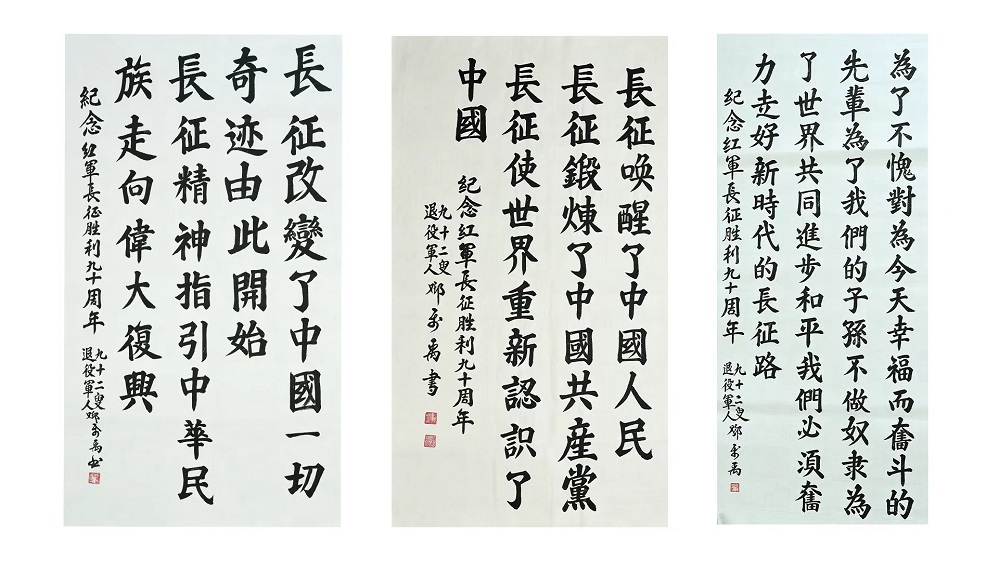 長征改變了中國一切
奇迹由此開始
長征精神指引中華民
族走向偉大復興
紀念红軍長征胜利九十周年
九十二叟
退役軍人鄧爾禹书
長征唤醒了中國人民
長征鍛煉了中國共産黨
長征使世界重新認识了
中國
紀念红軍長征胜利九十周年
九十二叟
退役軍人 禹書
為了不愧對為今天幸福而奮斗的
先輩為了我們的子孫不做奴隶為
了世界共同進步和平我們必須奮
力走好新時代的長征路
紀念红軍長征胜利九十周年
九十二叟
退役軍人 禹